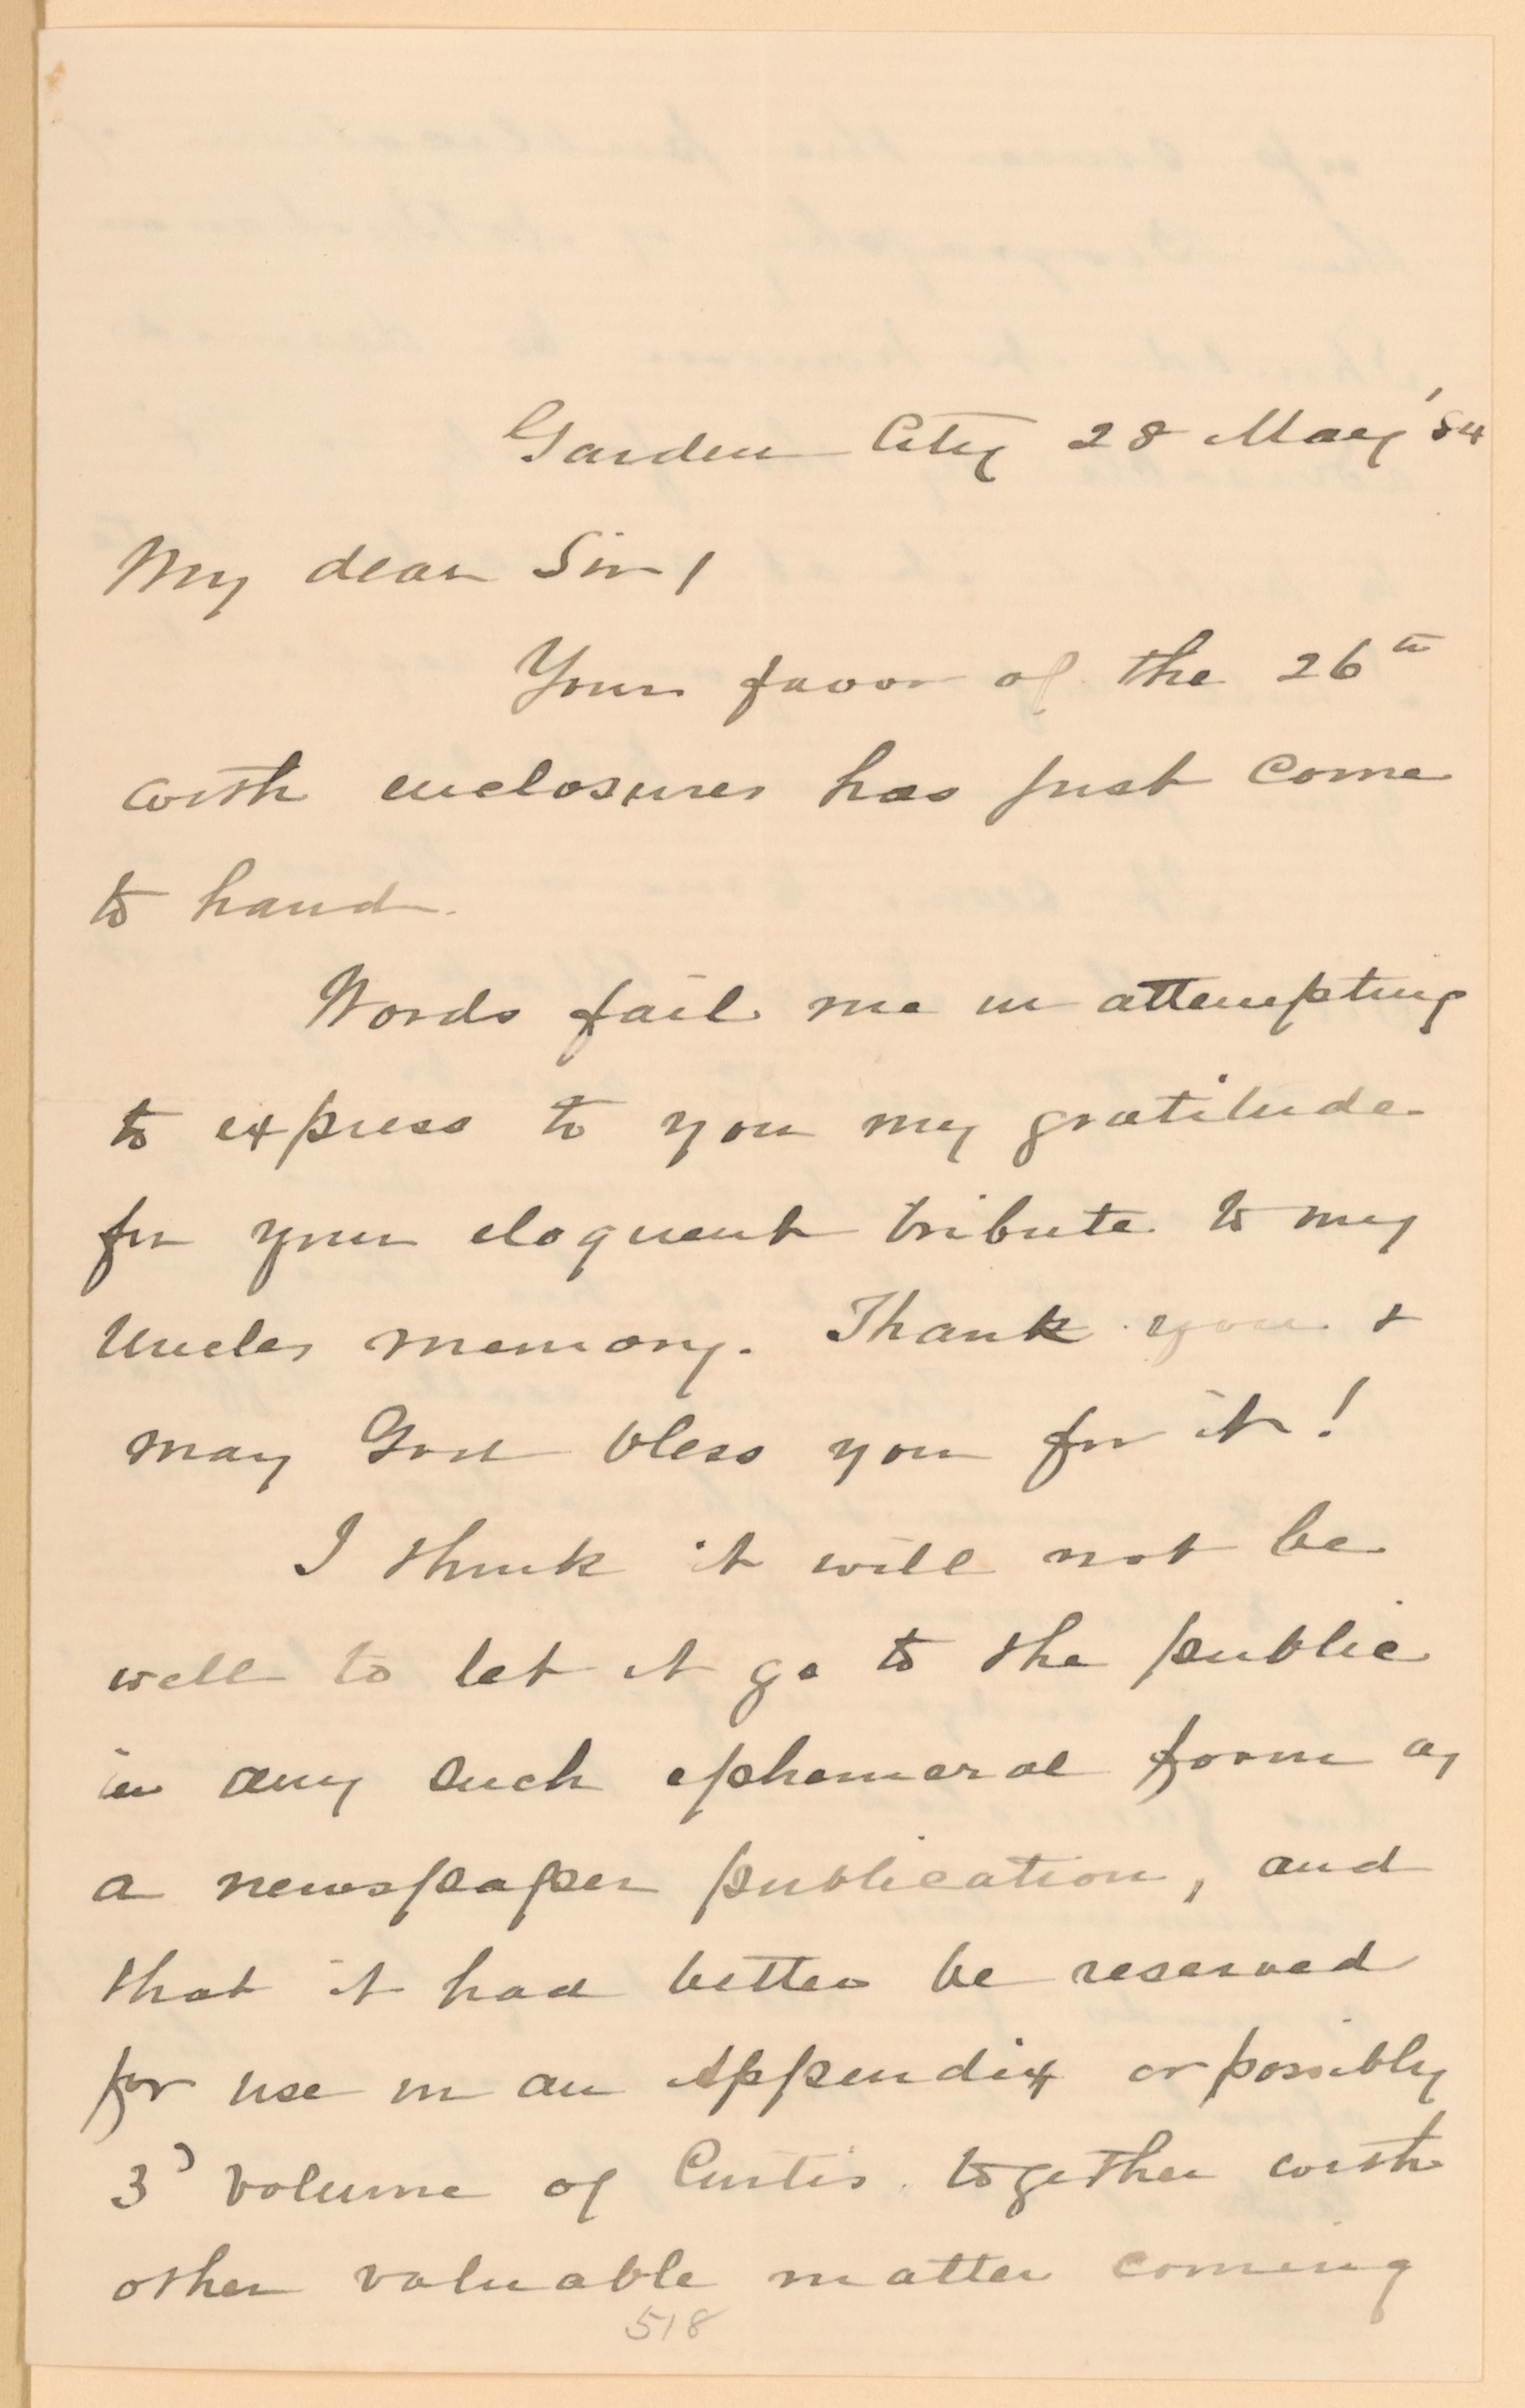 Garden City 28 May '84
My dear Sir,
Your favor of the 26th
with enclosures has just come
to hand.
Words fail me in attempting
to express to you my gratitude
for your eloquent tribute to my
Uncles memory. Thank you &
may God bless you for it!
I think it will not be
well to let it go to the public
in any such ephemeral form as
a newspaper publication, and
that it had better be reserved
for use in an Appendix or possibly
3d volume of Curtis together with
other valuable matter coming
518